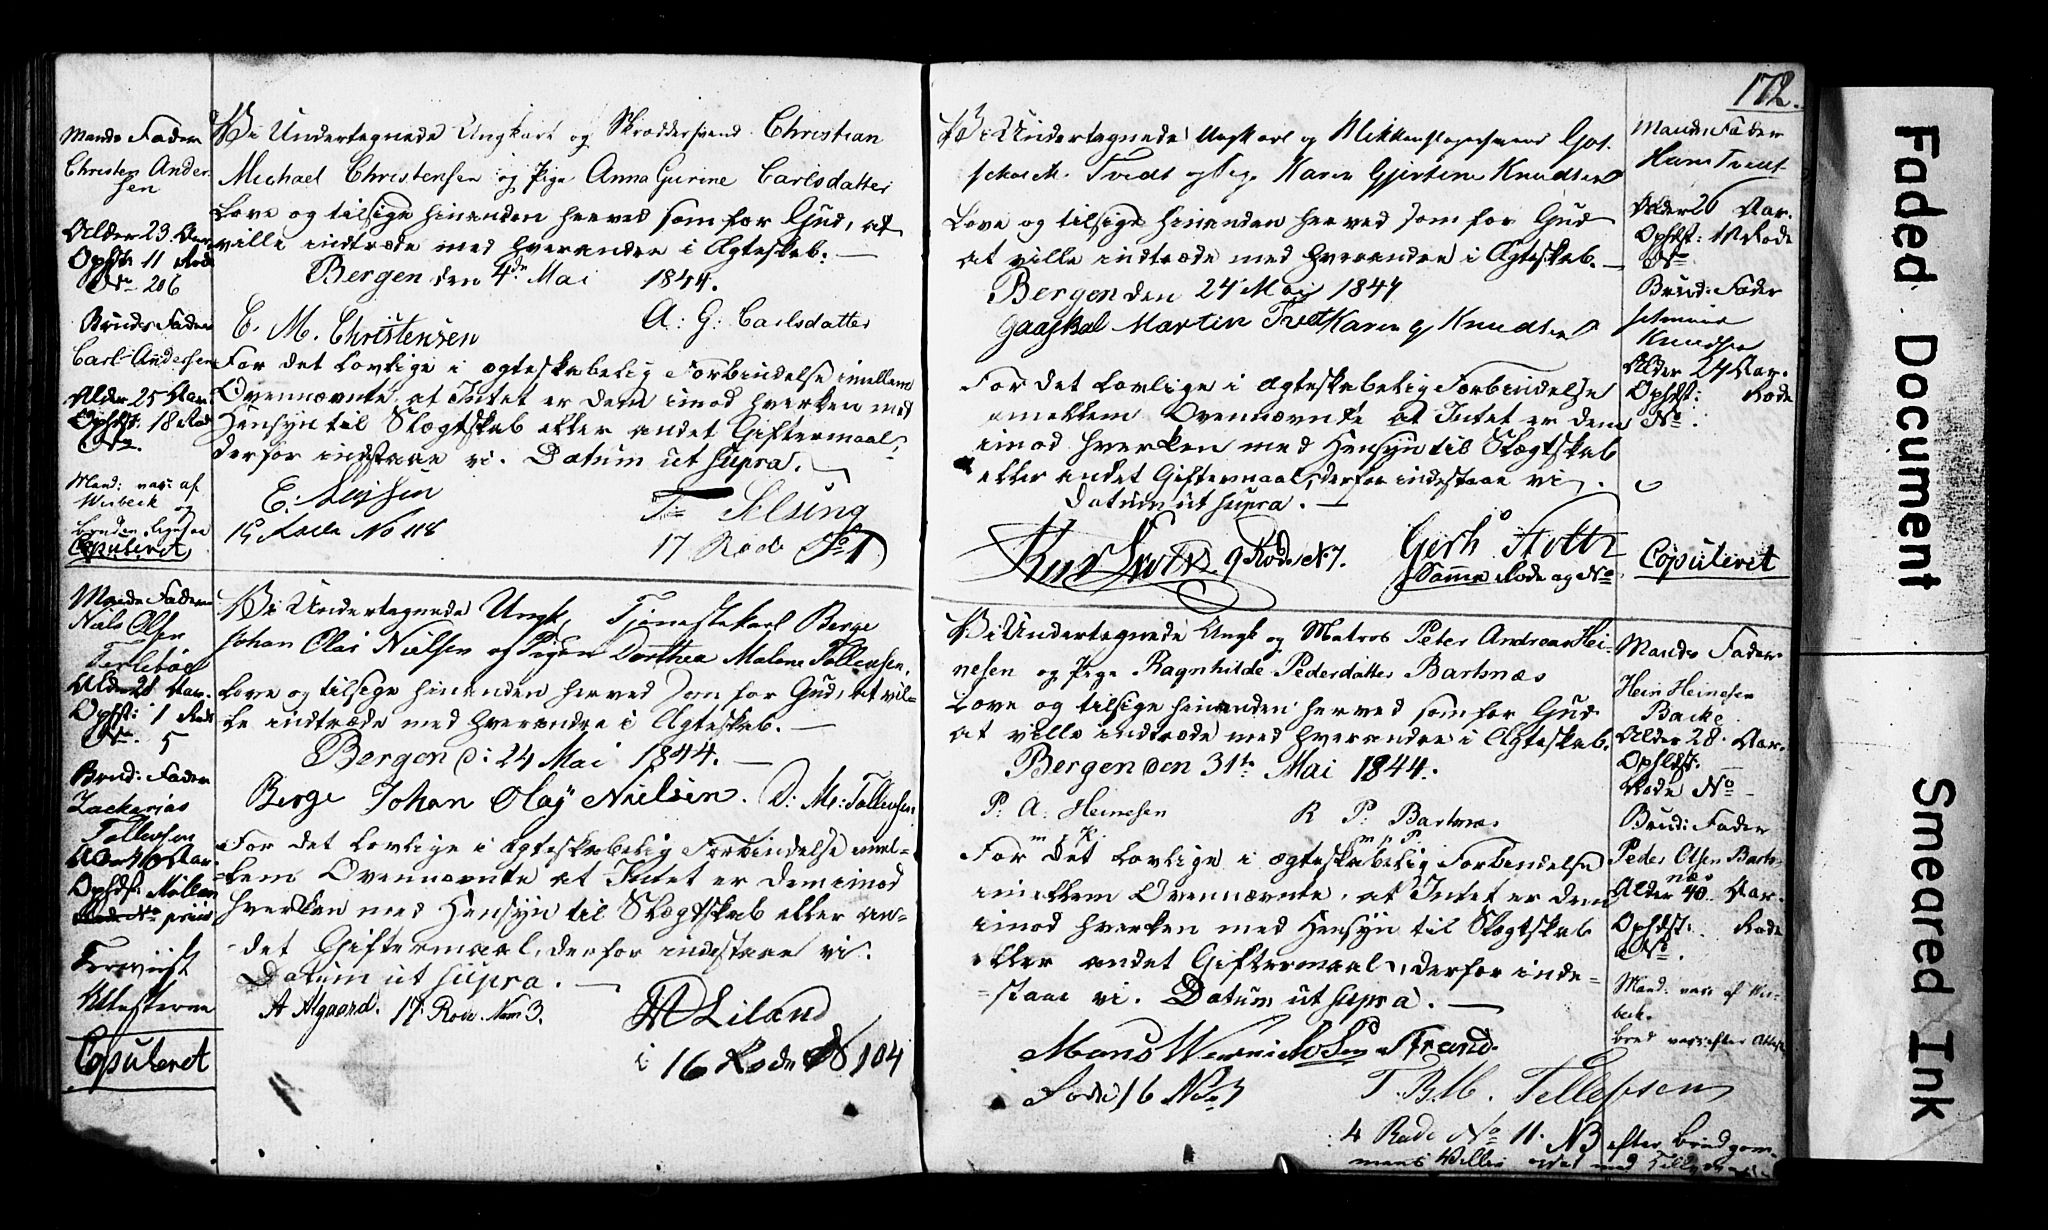 Mands Fader
Christen Ander-
sen
Alder 23 Aar
Ophst: 11 Rode
No 206
Bruds Fader
Carl Andersen
Alder 25 Aar.
Ophdst: 18 Rod
No.
Mand: vac: af
Wisbeck og
bruden
Copuleret
Vi Undertegnede Ungkarl og Skræddersvend Christian
Michael Christensen og Pige Anna Gurine Carlsdatter
Love og tilsige hinanden herved som for Gud, at
ville indtræde med hverandre i Ægteskab. —
Bergen den 4de Mai 1844.
C. M. Christensen A: G: Carlsdatter
For det Lovlige i ægteskabelig Forbindelse imellem
Ovennævnte, at Intet er dem imod hverken med
Hensyn til Slægtskab eller andet Giftermaal,
derfor indestaae vi. Datum ut supra. —
17 Rode No 1
Mands Fader
Niels Olsen
Terlebøe
Alder 28 Aar.
Ophst: 1 Rode
No. 5
Brud: Fader
Zacharias
Tollevsen
Alder 40 Aar.
Ophdst: Møllen
Foreviist
Attesterne
Copuleret
Vi Undertegnede Ungk. Tjenestekarl Berge
Johan Olai Nielsen og Pigen Dorthea Malene Tollevsen,
Love og tilsige hinanden herved som for Gud, at vil-
le indtræde med hverandre i Ægteskab. —
Bergen d: 24 Mai 1844. —
Berge Johan Olay Nielsen. D: M: Tollevsen
For det Lovlige i Ægteskabelig Forbindelse imel-
lem Ovennævnte at Intet er dem imod
hverken med Hensyn til Slægtskab eller an-
det Giftermaal, derfor indestaae vi.
Datum ut supra. —
A Algaard. 17 Rode Nom 3. Liland
i 16 Rode No 104
172.
Vi Undertegnede Ungkarl og Blikkenslagersvend Got-
schalck M. Tvedt og Pige Karen Gjertine Knudsen
Love og tilsige hinanden herved som for Gud
at ville indtræde med hverandre i Ægteskab. —
Bergen den 24 Mai 1844
Gaaskal Martin Tvet Karen g Knudsen
For det Lovlige i Ægteskabelig Forbindelse
imellem Ovennævnte at Intet er dem
imod hverken med Hensyn til Slægtskab
eller andet Giftermaal, derfor indestaae vi.
Datum ut supra. —
9 Rode No 7. Gerh
Samme Rode og No
Mands Fader
Hans Tvedt
Alder 26 Aar.
Ophdst: 12 Rode
No
Brud: Fader
Knudsen
Alder 24 Aar.
Ophdst: Rode
No.
Copuleret
Vi Undertegnede Ungk og Matros Peter Andreas Hei-
nesen og Pige Ragnhilde Pedersdatter Bartnæs
Love og tilsige hinanden herved som for Gud
at ville indtræde med hverandre i Ægteskab.
Bergen den 31te Mai 1844.
P: A: Heinesen R P: Bartnæs
m. p. m. p. P.
For Det Lovlige i ægteskabelig Forbindelse
imellem Ovennævnte, at Intet er dem
imod hverken med Hensyn til Slægtskab
eller andet Giftermaal, derfor inde-
staae vi. Datum ut supra. —
Mons Wernichsen Strand.
Rode 16 No 7 T. B. M. Tellefsen
4 Rode No 11. NB efter brudgom-
mens Villie
Mands Fader
Hein Heinesen
Backe
Alder 28 Aar.
Ophldst:
Rode No
Brud: Fader
Peder Olsen Bart-
næs
Alder 40 Aar.
Ophdst: Rode
No.
Mand: vac: af Wis-
beck.
brud vac: efter Attest
Faded Document
Smeared Ink